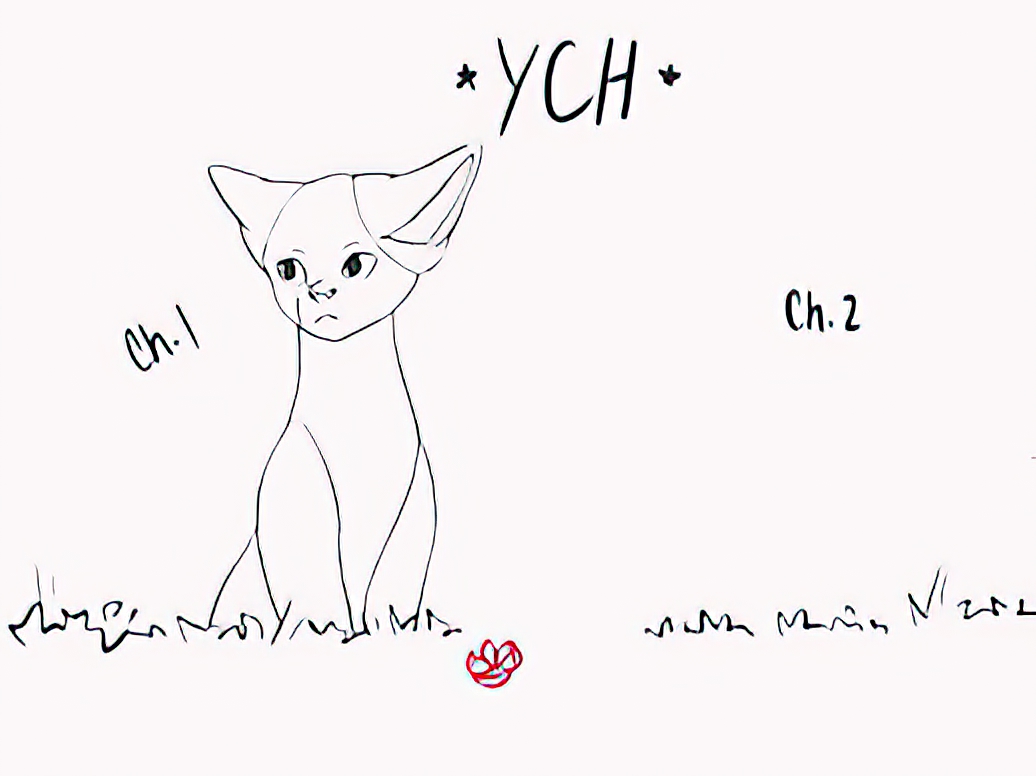 *YCH*
Ch.1
Ch.2